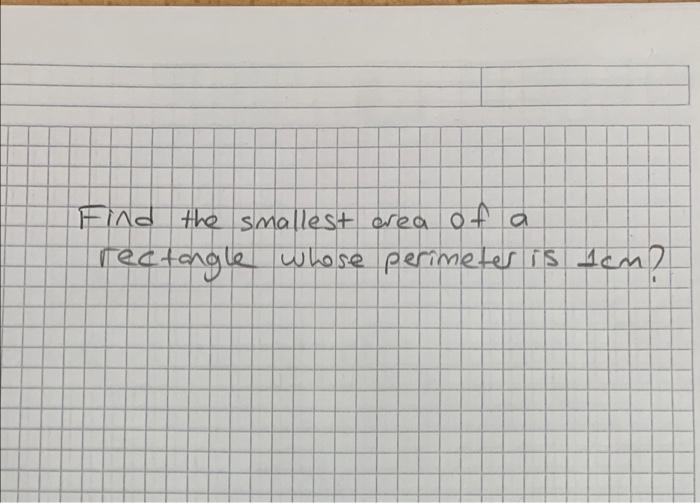 Find the smallest area of a
rectangle whose perimeter is 1cm?